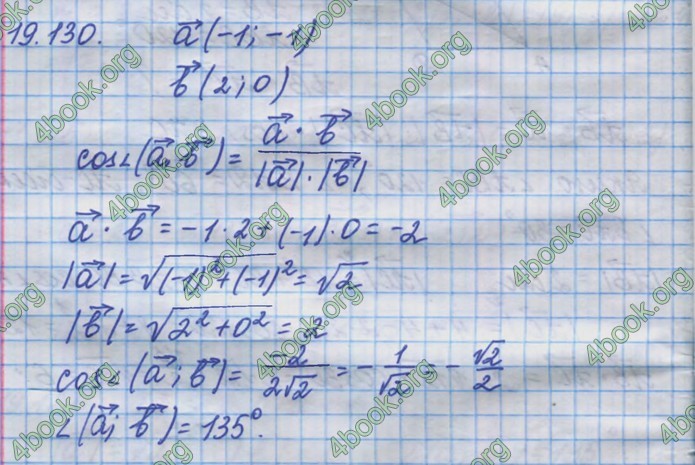 19.130. a⃗ (-1; -1)
b⃗ (2; 0)
cos∠(a⃗, b⃗) = a⃗ · b⃗ / |a⃗| · |b⃗|
a⃗ · b⃗ = -1 · 2 + (-1) · 0 = -2
|a⃗| = √((-1)² + (-1)²) = √2
|b⃗| = √(2² + 0²) = 2
cos∠(a⃗; b⃗) = -2 / 2√2 = - 1/√2 = - √2/2
∠(a⃗; b⃗) = 135°.
4book.org
4book.org
4book.org
4book.org
4book.org
4book.org
4book.org
4book.org
4book.org
4book.org
4book.org